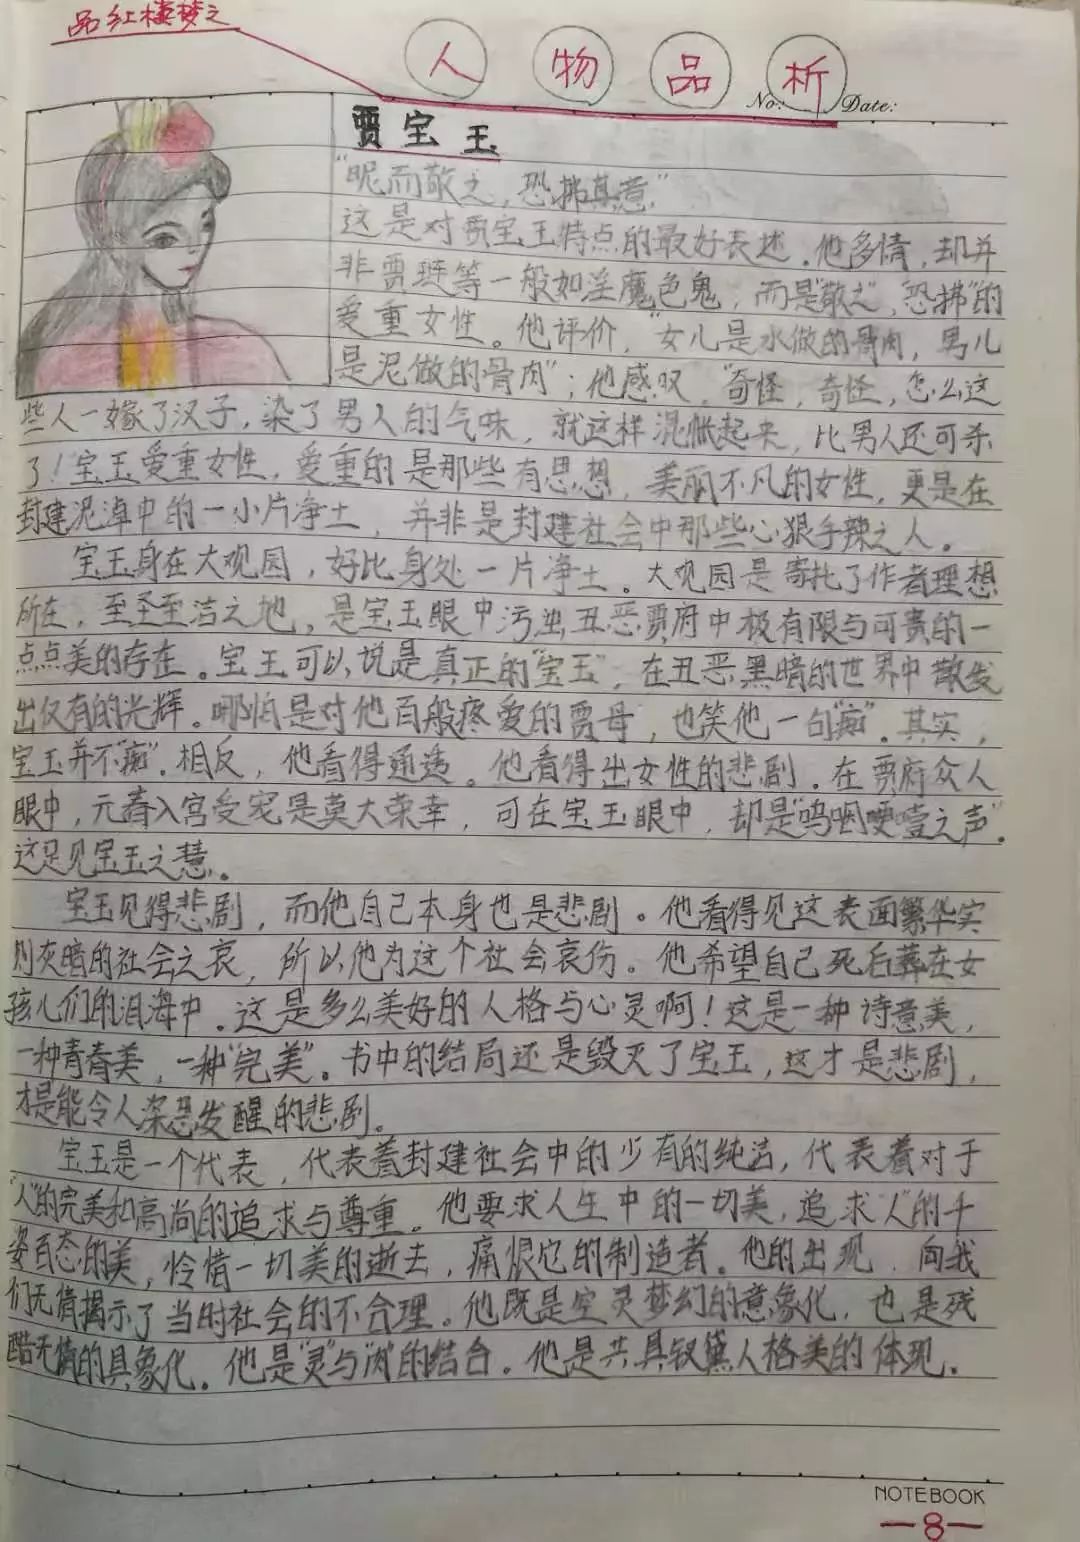 品红楼梦之
人物品析
No:
Date:
贾宝玉
"昵而敬之,恐拂其意"
这是对贾宝玉特点的最好表述。他多情,却并
非贾琏等一般如淫魔色鬼,而是"敬之","恐拂"的
爱重女性。他评价,"女儿是水做的骨肉,男儿
是泥做的骨肉";他感叹,"奇怪,奇怪,怎么这
些人一嫁了汉子,染了男人的气味,就这样混帐起来,比男人还可杀
了!宝玉爱重女性,爱重的是那些有思想,美丽不凡的女性,更是在
封建泥淖中的一小片净土,并非是封建社会中那些心狠手辣之人。
宝玉身在大观园,好比身处一片净土。大观园是寄托了作者理想
所在,至圣至洁之地,是宝玉眼中污浊丑恶贾府中极有限与可贵的一
点点美的存在。宝玉可以说是真正的"宝玉",在丑恶黑暗的世界中散发
出仅有的光辉。哪怕是对他百般疼爱的贾母,也笑他一句"痴"。其实,
宝玉并不"痴"。相反,他看得通透。他看得出女性的悲剧。在贾府众人
眼中,元春入宫受宠是莫大荣幸,可在宝玉眼中,却是"呜咽哽噎之声"。
这足见宝玉之慧。
宝玉见得悲剧,而他自己本身也是悲剧。他看得见这表面繁华实
则灰暗的社会之哀,所以他为这个社会哀伤。他希望自己死后葬在女
孩儿们的泪海中。这是多么美好的人格与心灵啊!这是一种诗意美,
一种青春美,一种"完美"。书中的结局还是毁灭了宝玉,这才是悲剧,
才是能令人深恐发醒的悲剧。
宝玉是一个代表,代表着封建社会中的少有的纯洁,代表着对于
"人"的完美和高尚的追求与尊重。他要求人生中的一切美,追求"人"的千
姿百态的美,怜惜一切美的逝去,痛恨它的制造者。他的出现,向我
们无情揭示了当时社会的不合理。他既是空灵梦幻的意象化,也是残
酷无情的具象化。他是"灵"与"肉"的结合。他是共具钗黛人格美的体现。
NOTEBOOK
—8—